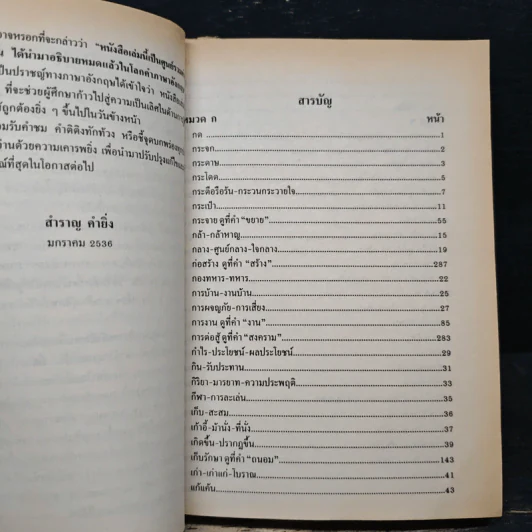 าจหรอกที่จะกล่าวว่า "หนังสือเล่มนี้เป็นศูนย์รวม
น ได้นำมาอธิบายหมดแล้วในโลกคำภาษาอังกฤษ
เป็นปราชญ์ทางภาษาอังกฤษได้เข้าใจว่า หนังสือ
ที่จะช่วยผู้ศึกษาก้าวไปสู่ความเป็นเลิศในด้าน
ถูกต้องยิ่ง ๆ ขึ้นไปในวันข้างหน้า
มรับคำชม คำติติงทักท้วง หรือชี้จุดบกพร่อง
านด้วยความเคารพยิ่ง เพื่อนำมาปรับปรุงแก้ไข
ณ์ที่สุดในโอกาสต่อไป
สำราญ คำยิ่ง
มกราคม 2536
สารบัญ
หมวด ก หน้า
กด 1
กระจก 2
กระดาษ 3
กระโดด 5
กระดือรือร้น-กระวนกระวายใจ 7
กระเป๋า 11
กระจาย ดูที่คำ "ขยาย" 55
กล้า-กล้าหาญ 15
กลาง-ศูนย์กลาง-ใจกลาง 19
ก่อสร้าง ดูที่คำ "สร้าง" 287
กองทหาร-ทหาร 22
การบ้าน-งานบ้าน 25
การผจญภัย-การเสี่ยง 27
การงาน ดูที่คำ "งาน" 85
การต่อสู้ ดูที่คำ "สงคราม" 283
กำไร-ประโยชน์-ผลประโยชน์ 29
กิน-รับประทาน 31
กิริยา-มารยาท-ความประพฤติ 33
กีฬา-การละเล่น 35
เก็บ-สะสม 36
เก้าอี้-ม้านั่ง-ที่นั่ง 37
เกิดขึ้น-ปรากฏขึ้น 39
เก็บรักษา ดูที่คำ "ถนอม" 143
เก่า-เก่าแก่-โบราณ 41
แก้แค้น 43